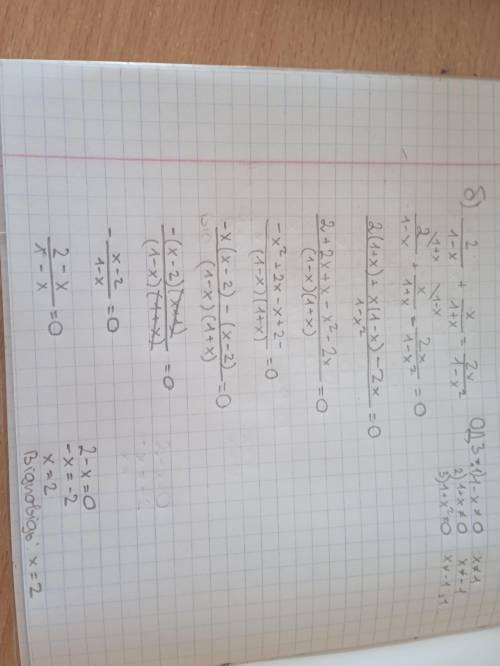 б) 2/(1-x) + x/(1+x) = 2x/(1-x²) ОДЗ: 1) 1-x≠0 x≠1
2) 1+x≠0 x≠-1
2\1+x/(1-x) + x\1-x/(1+x) = 2x/(1-x²) = 0 3) 1+x²≠0 x≠-1,1
(2(1+x)+x(1-x)-2x)/(1-x²) = 0
(2+2x+x-x²-2x)/((1-x)(1+x)) = 0
(-x²+2x-x+2-)/((1-x)(1+x)) = 0
(-x(x-2)-(x-2))/((1-x)(1+x)) = 0
(-(x-2)(x+1))/((1-x)(1+x)) = 0
-(x-2)/(1-x) = 0
(2-x)/(1-x) = 0
2-x=0
-x=-2
x=2
Відповідь: x=2